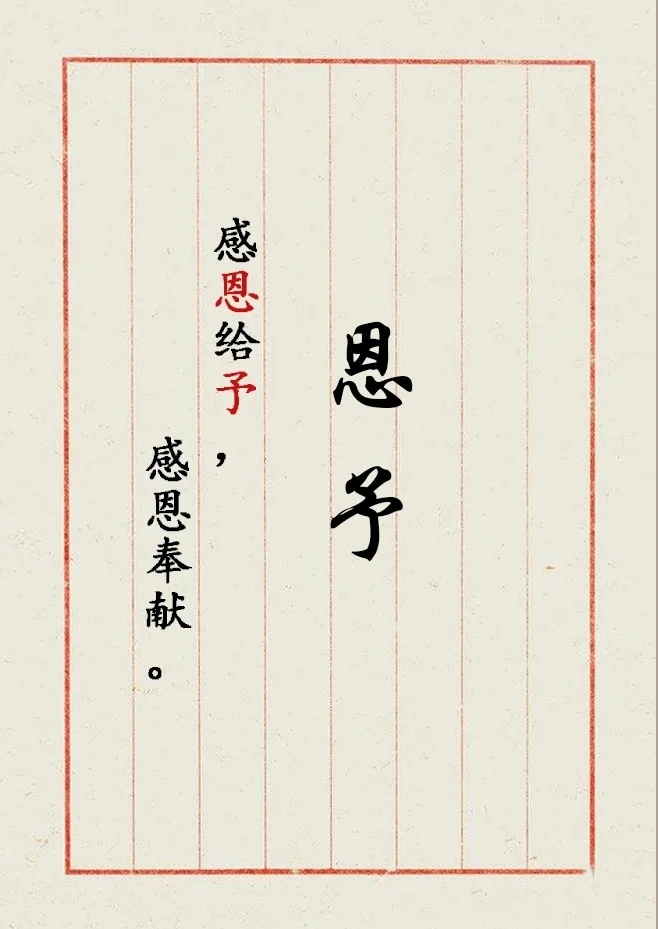 恩予
感恩给予，
感恩奉献。